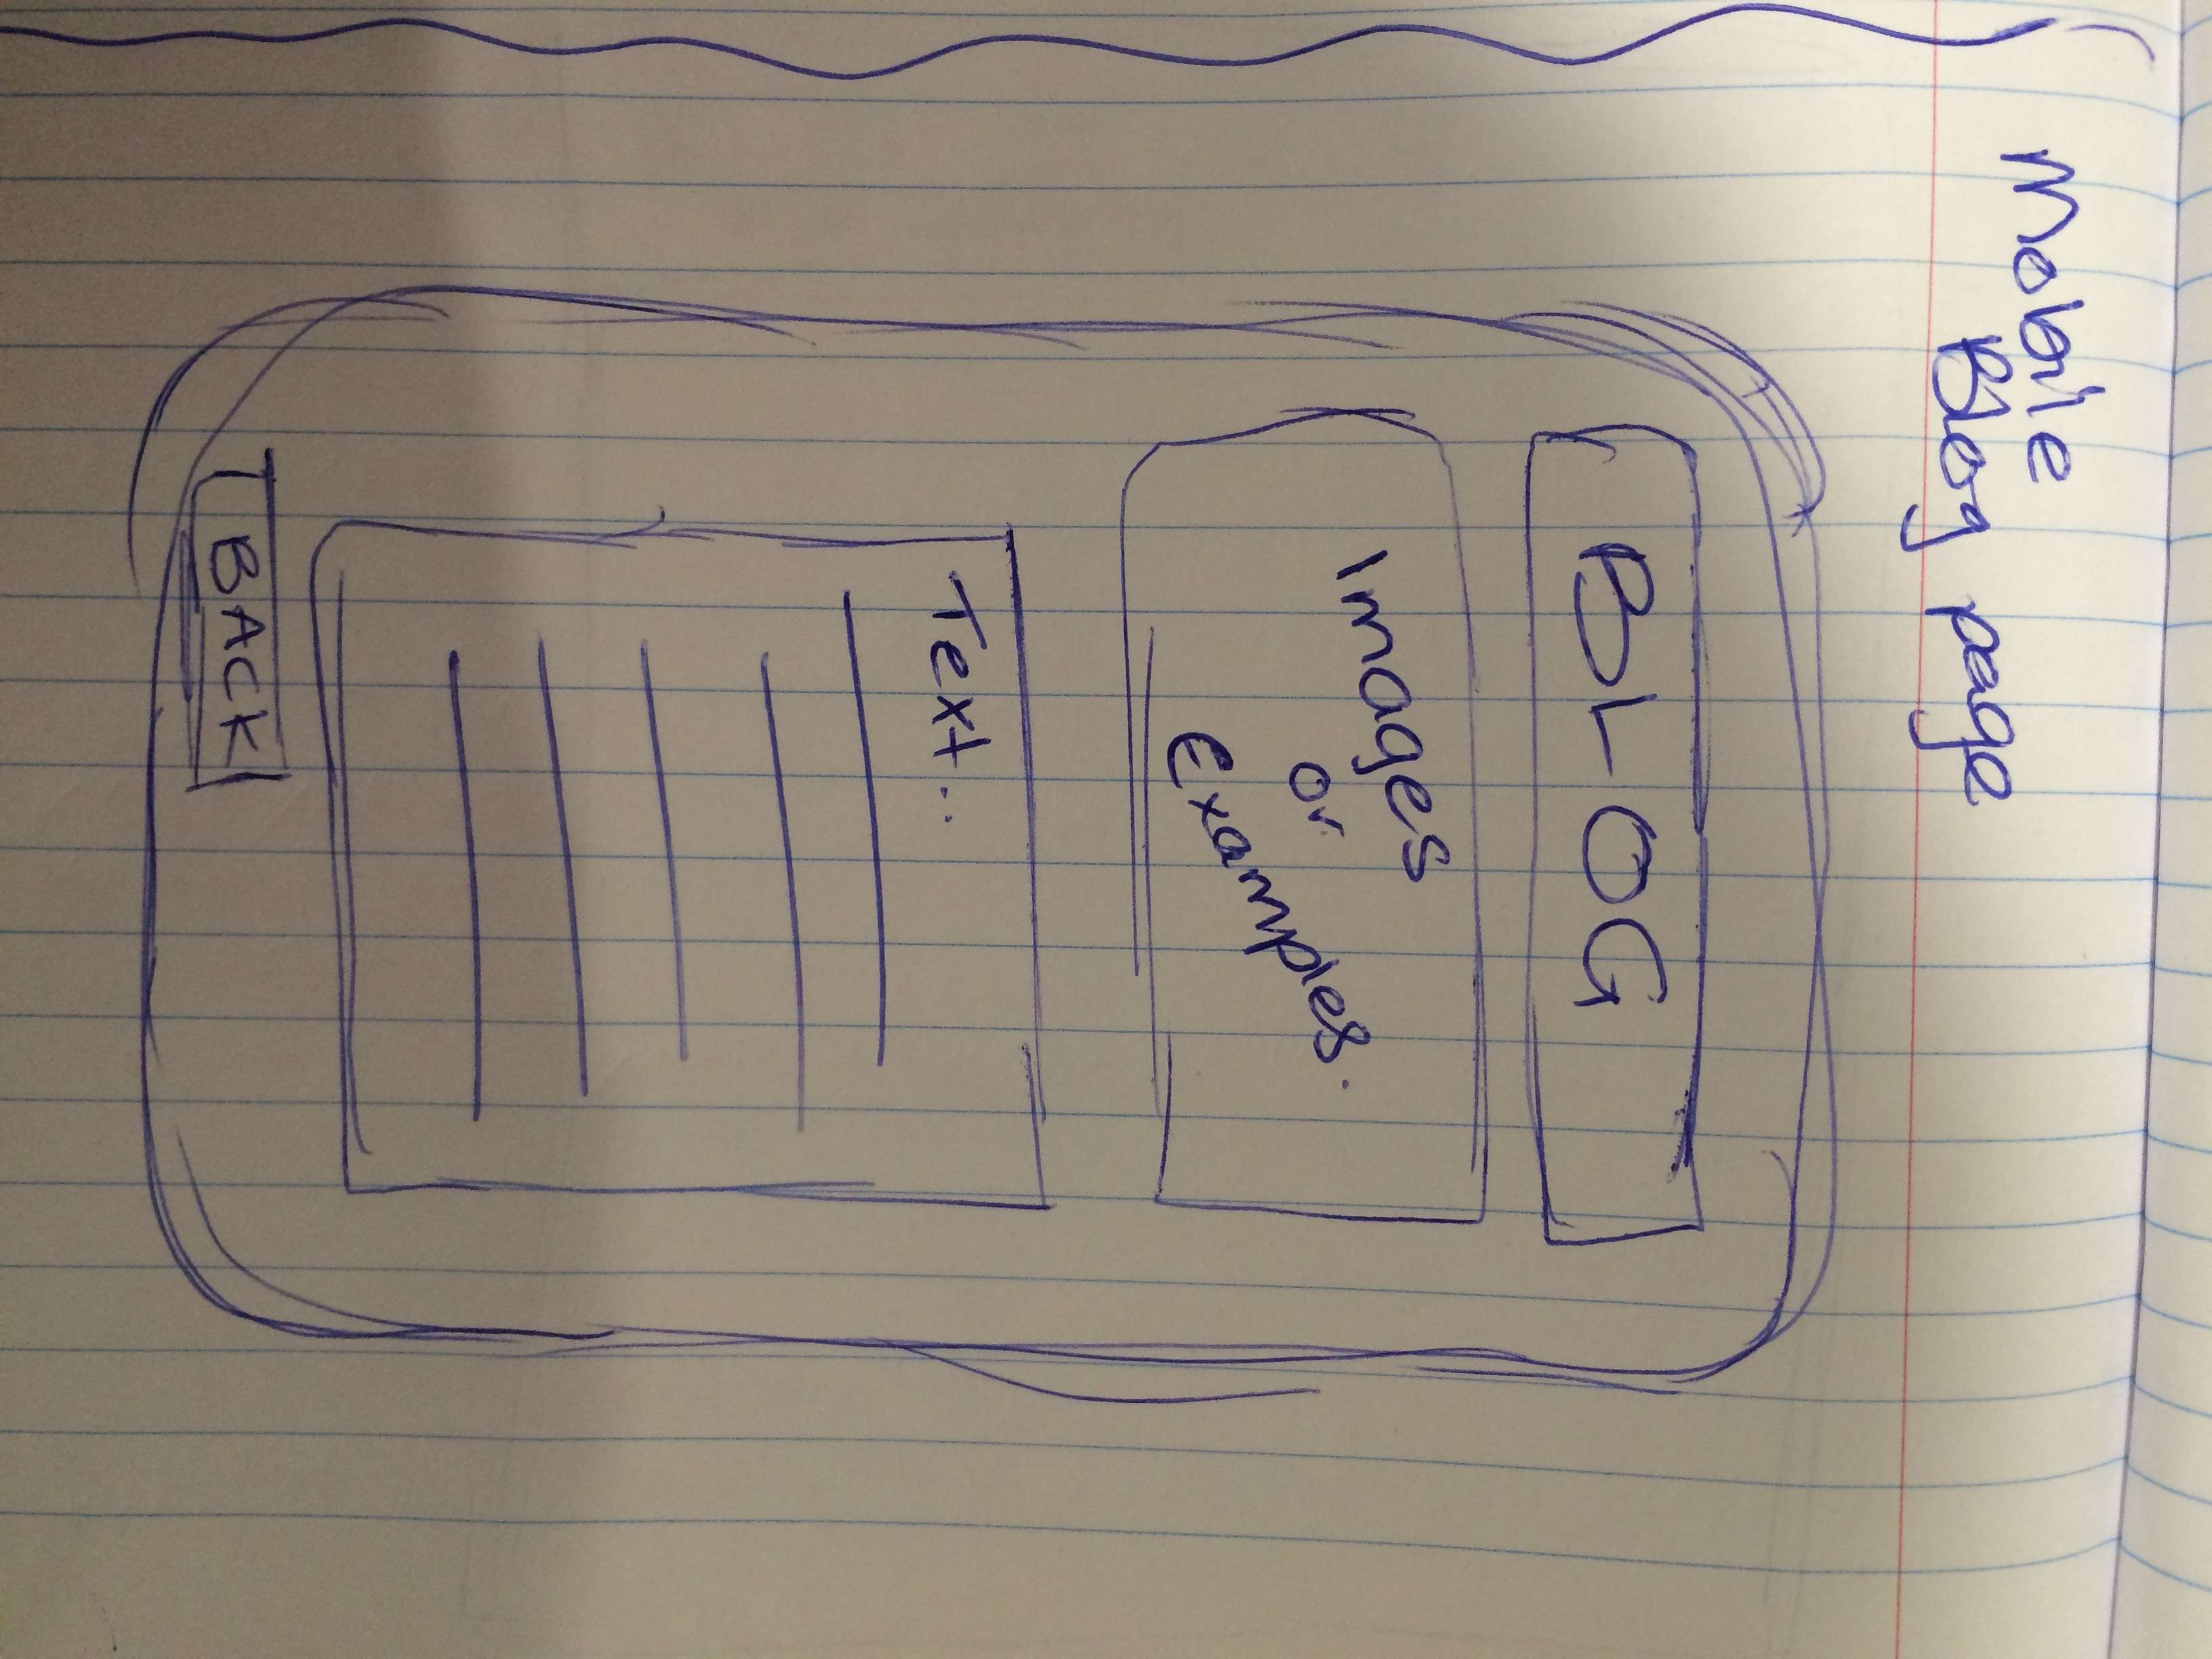 Mobile
Blog page
BLOG
Images
or
Examples.
Text...
BACK